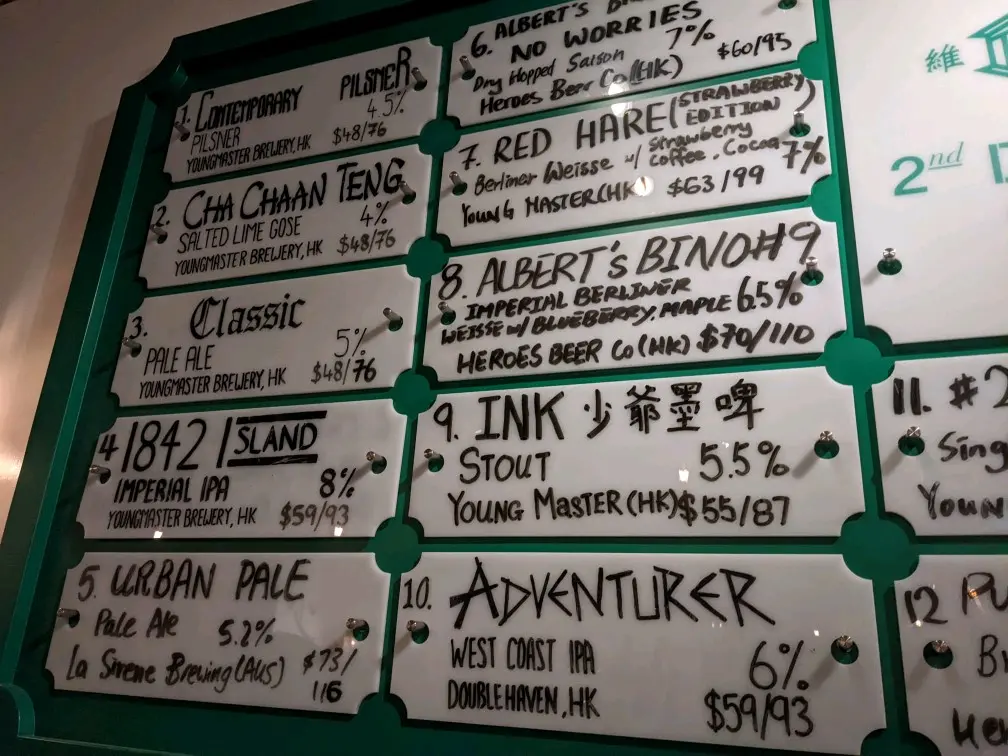 1. CONTEMPORARY PILSNER
4.5%
PILSNER
YOUNGMASTER BREWERY, HK $48/76
2. CHA CHAAN TENG
4%
SALTED LIME GOSE
YOUNGMASTER BREWERY, HK $48/76
3. Classic
5%
PALE ALE
YOUNGMASTER BREWERY, HK $48/76
4 1842 ISLAND
IMPERIAL IPA 8%
YOUNGMASTER BREWERY, HK $59/93
5. URBAN PALE
Pale Ale 5.2%
La Sirene Brewing (AUS) $73/
116
6. ALBERT'S
NO WORRIES
7%
Dry Hopped Saison
Heroes Beer Co (HK) $60/95
7. RED HARE (STRAWBERRY
EDITION)
Berliner Weisse w/ Strawberry
Coffee, Cocoa 7%
YOUNG MASTER (HK) $63/99
8. ALBERT'S BINO#9
IMPERIAL BERLINER
WEISSE w/ BLUEBERRY, MAPLE 6.5%
HEROES BEER Co (HK) $70/110
9. INK 少爺墨啤
STOUT 5.5%
YOUNG MASTER (HK) $55/87
10. ADVENTURER
WEST COAST IPA 6%
DOUBLEHAVEN, HK $59/93
11. #2
Sing
Youn
12 Pu
維
2nd